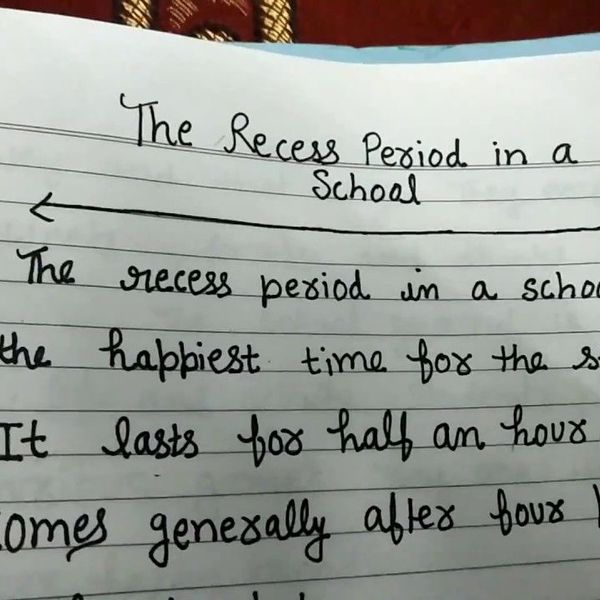 The Recess Period in a
School
The recess period in a schoo
the happiest time for the s
It lasts for half an hour
omes generally after four